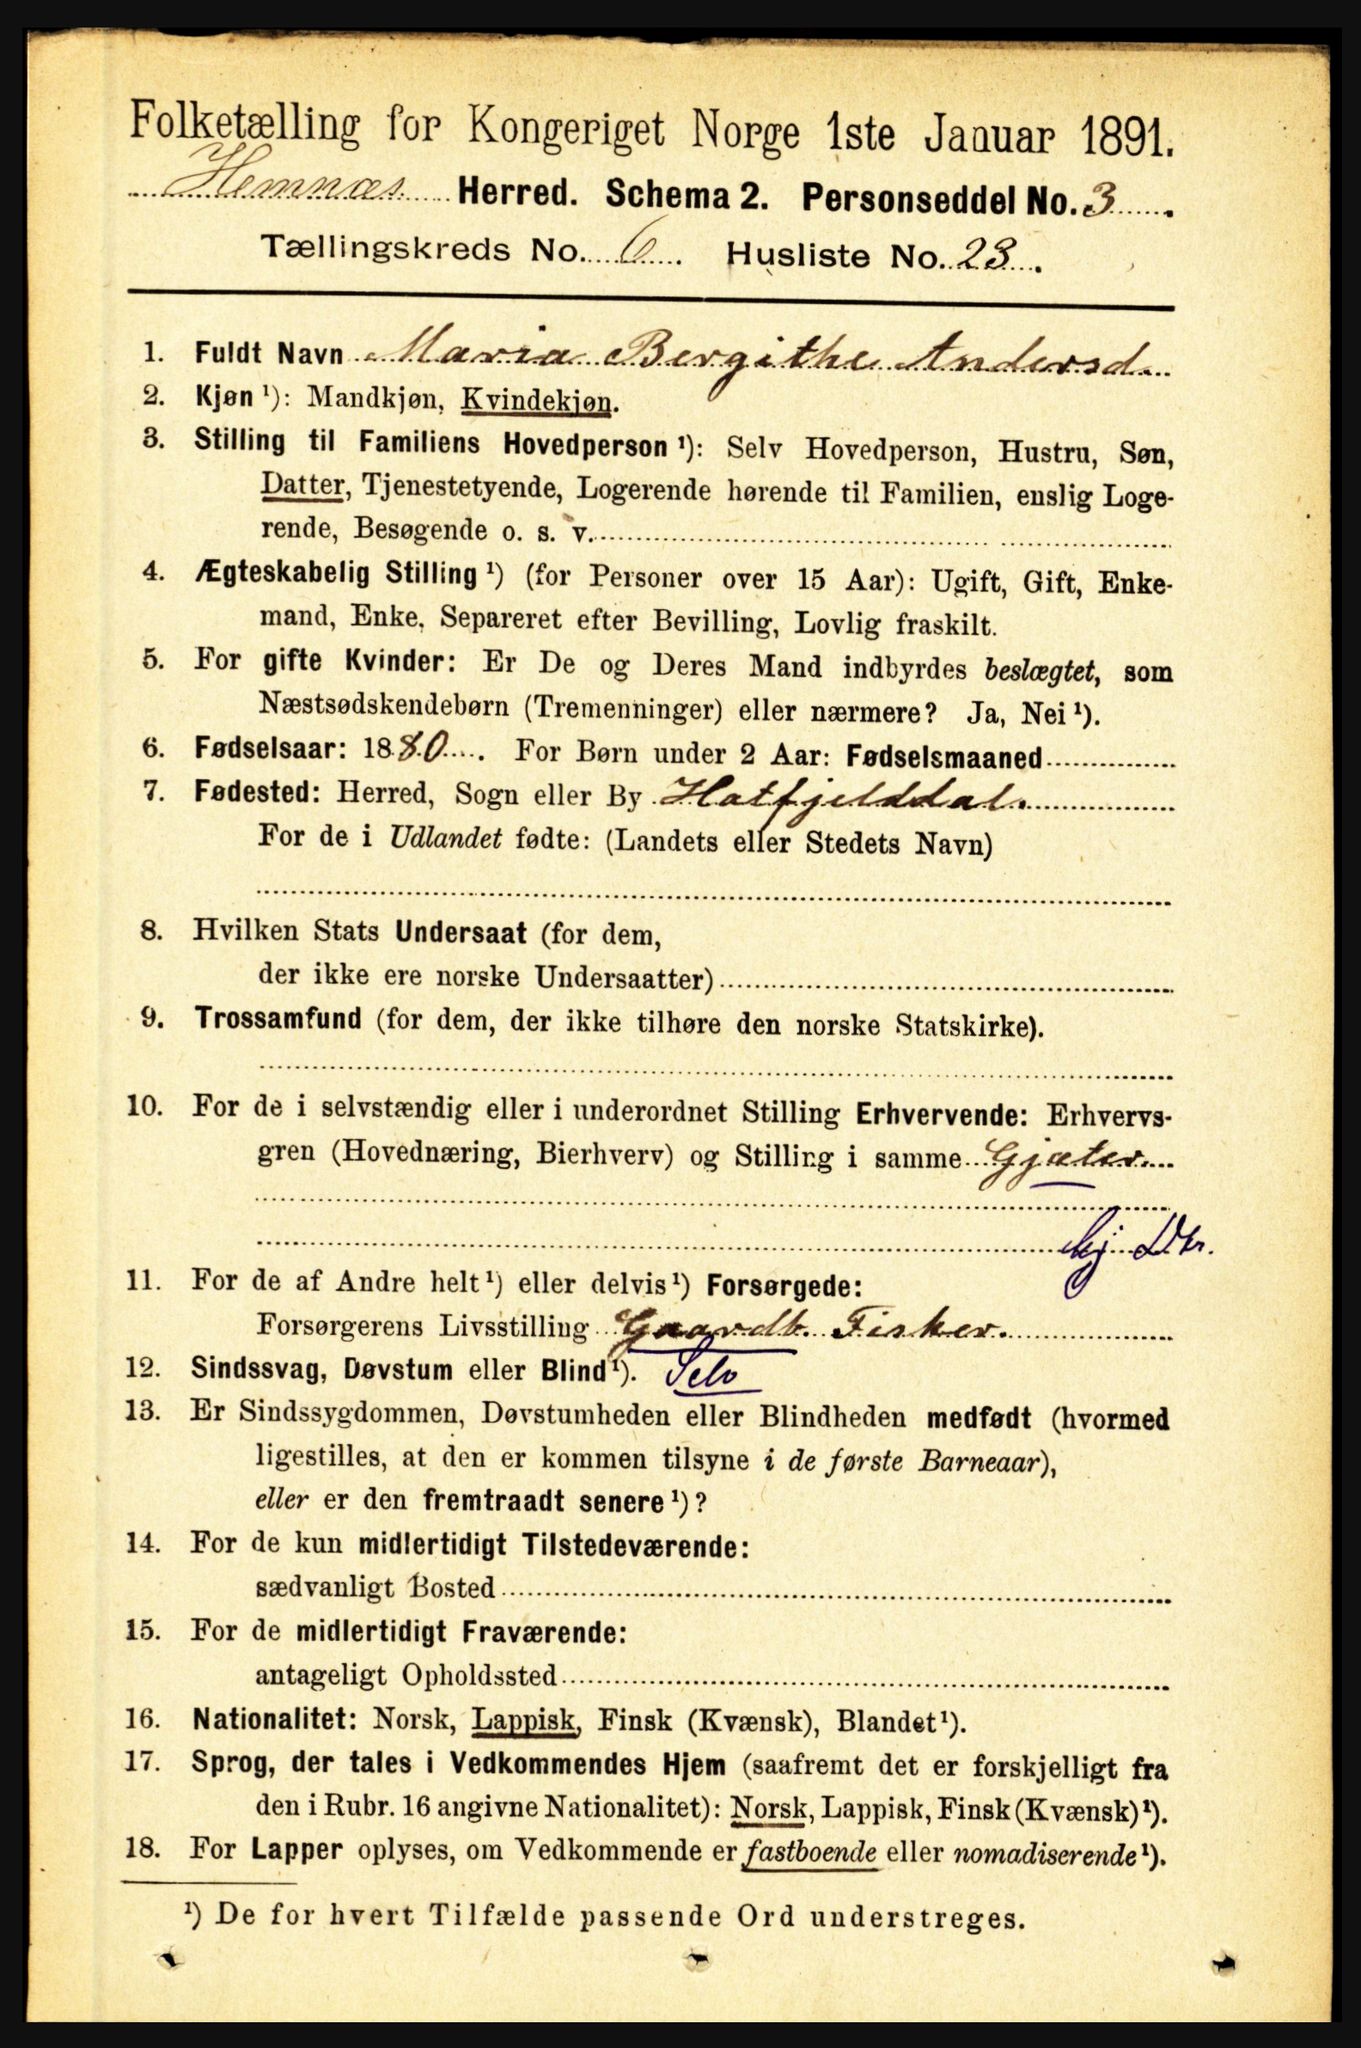 Folketælling for Kongeriget Norge 1ste Januar 1891.
Hemnæs Herred. Schema 2. Personseddel No. 3
Tællingskreds No. 6. Husliste No. 23.
1. Fuldt Navn Maria Bergithe Andersd.
2. Kjøn ¹): Mandkjøn, Kvindekjøn.
3. Stilling til Familiens Hovedperson ¹): Selv Hovedperson, Hustru, Søn,
Datter, Tjenestetyende, Logerende hørende til Familien, enslig Loge-
rende, Besøgende o. s. v.
4. Ægteskabelig Stilling ¹) (for Personer over 15 Aar): Ugift, Gift, Enke-
mand, Enke, Separeret efter Bevilling, Lovlig fraskilt.
5. For gifte Kvinder: Er De og Deres Mand indbyrdes beslægtet, som
Næstsødskendebørn (Tremenninger) eller nærmere? Ja, Nei ¹).
6. Fødselsaar: 1880. For Børn under 2 Aar: Fødselsmaaned
7. Fødested: Herred, Sogn eller By Hatfjelddal.
For de i Udlandet fødte: (Landets eller Stedets Navn)
8. Hvilken Stats Undersaat (for dem,
der ikke ere norske Undersaatter)
9. Trossamfund (for dem, der ikke tilhøre den norske Statskirke).
10. For de i selvstændig eller i underordnet Stilling Erhvervende: Erhvervs-
gren (Hovednæring, Bierhverv) og Stilling i samme Gjæter.
11. For de af Andre helt ¹) eller delvis ¹) Forsørgede:
Forsørgerens Livsstilling Gaardb. Fisker.
12. Sindssvag, Døvstum eller Blind ¹). Selv
13. Er Sindssygdommen, Døvstumheden eller Blindheden medfødt (hvormed
ligestilles, at den er kommen tilsyne i de første Barneaar),
eller er den fremtraadt senere ¹)?
14. For de kun midlertidigt Tilstedeværende:
sædvanligt Bosted
15. For de midlertidigt Fraværende:
antageligt Opholdssted
16. Nationalitet: Norsk, Lappisk, Finsk (Kvænsk), Blandet ¹).
17. Sprog, der tales i Vedkommendes Hjem (saafremt det er forskjelligt fra
den i Rubr. 16 angivne Nationalitet): Norsk, Lappisk, Finsk (Kvænsk) ¹).
18. For Lapper oplyses, om Vedkommende er fastboende eller nomadiserende ¹).
¹) De for hvert Tilfælde passende Ord understreges.